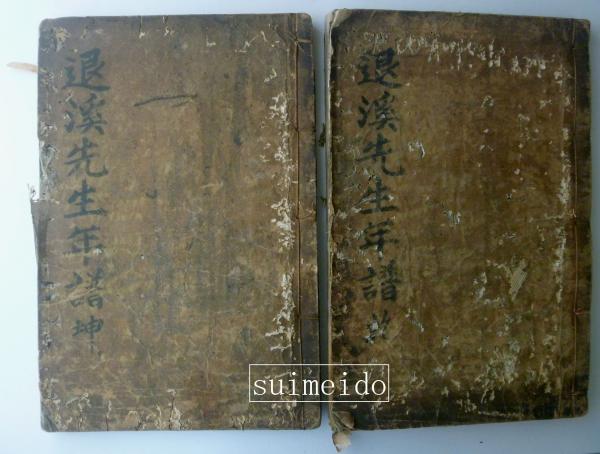 退溪先生年譜 坤
一
退溪先生年譜
suimeido